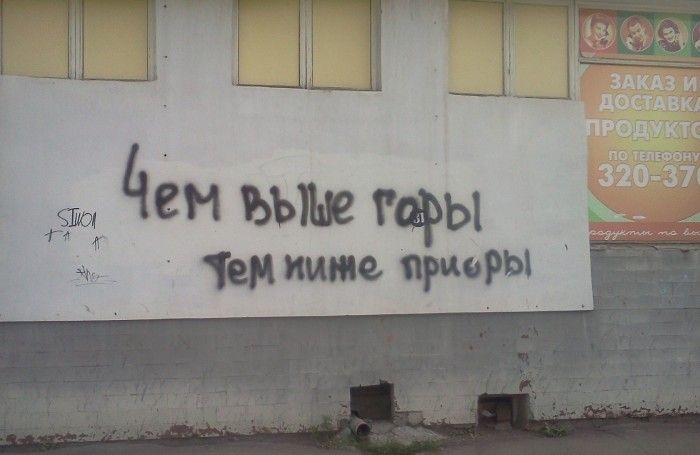 Чем выше горы
тем ниже приоры
SIMON
ЗАКАЗ И
ДОСТАВКА
ПРОДУКТО
ПО ТЕЛЕФОНУ
320-370